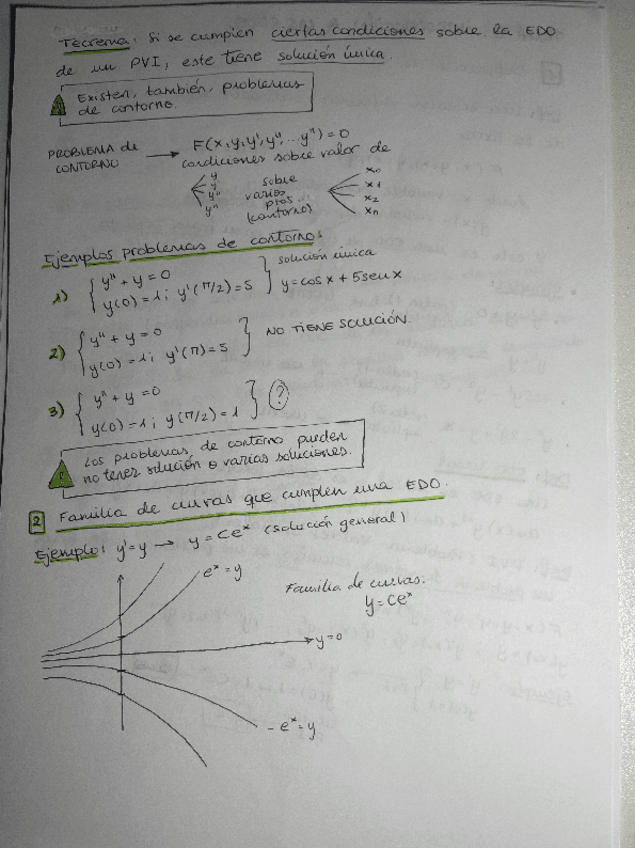 Teorema: Si se cumplen ciertas condiciones sobre la EDO
de un PVI, este tiene solución única.
Existen, también, problemas
de contorno.
PROBLEMA de CONTORNO → F(x, y, y', y'', ... yⁿ) = 0
condiciones sobre valor de
y
y'
y''
yⁿ
sobre
varios
ptos
(contorno)
x₀
x₁
x₂
xₙ
Ejemplos problemas de contorno:
1) { y'' + y = 0
y(0) = 1; y'(π/2) = 5 } solución única
y = cos x + 5 sen x
2) { y'' + y = 0
y(0) = 1; y'(π) = 5 } NO TIENE SOLUCIÓN.
3) { y'' + y = 0
y(0) = 1; y(π/2) = 1 } ?
Los problemas de contorno pueden
no tener solución o varias soluciones.
2 Familia de curvas que cumplen una EDO.
Ejemplo: y' = y → y = Ceˣ (solución general)
eˣ = y
Familia de curvas:
y = Ceˣ
y = 0
- eˣ = y